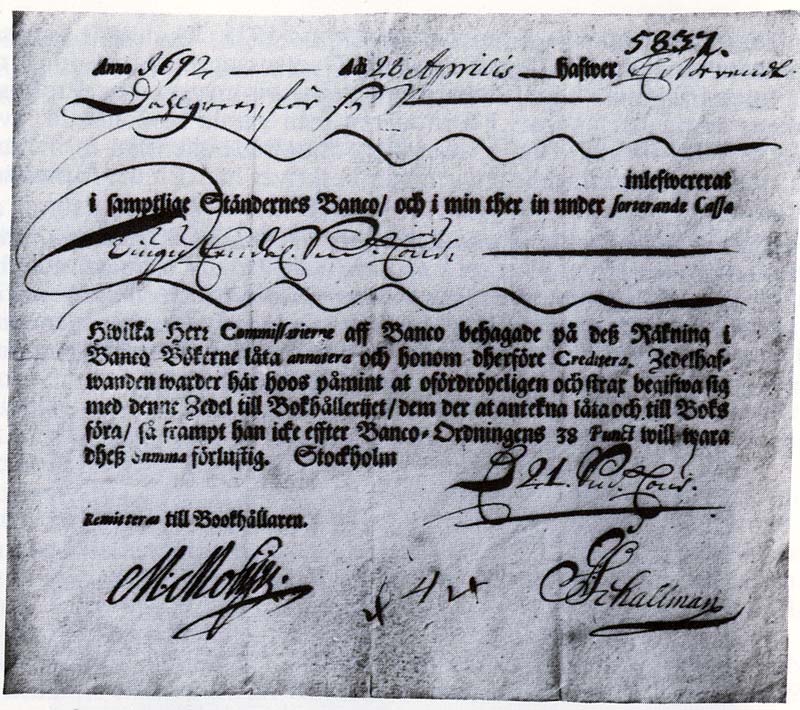 5837.
Anno 1692 Ady 28 Aprilis hafwer
Dahlgreen, för
inlefwererat
i samptlige Ständernes Banco/ och i min ther in under sorterande Cassa
Hwilka Herr Commissarierne aff Banco behagade på deß Räkning i
Banco Bökerne låta annotera och honom dherföre Creditera. Zedelhaf-
wanden warder här hoos påmint at ofördröyeligen och strax begifwa sig
med denne Zedel till Bokhålleriet/ dem der at antekna låta och till Boks
föra/ så frampt han icke effter Banco-Ordningens 38 Punct will wara
dheß Summa förlustig. Stockholm
D 21.
Remitteras till Bookhållaren.
4
Schallman